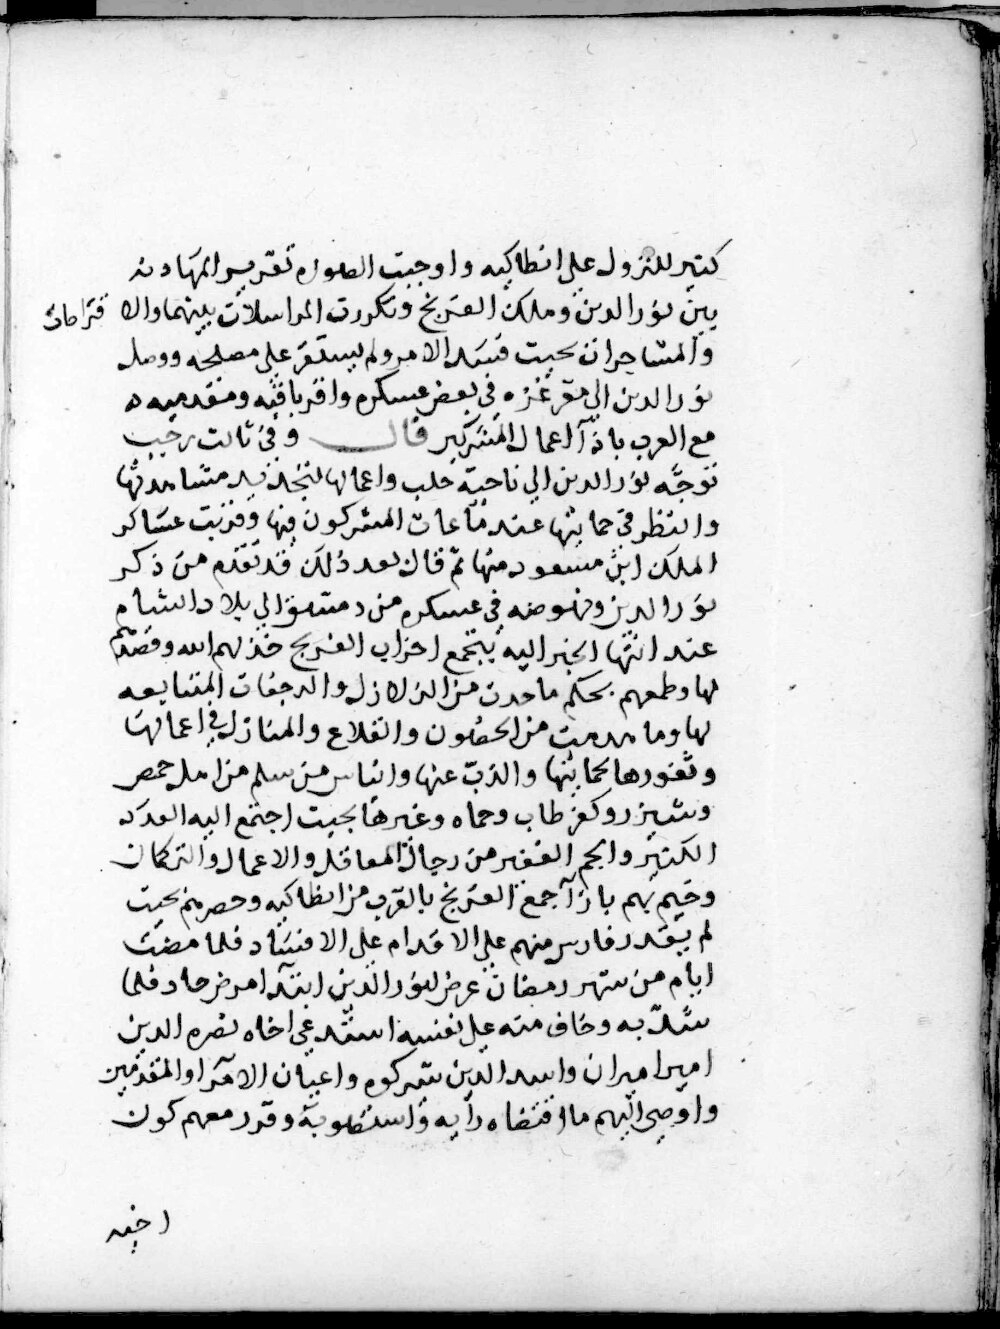 كثير للنزول علي انطاكيه واوجبت الصوره تقرير المهادنه
بين نور الدين وملك الفرنج وتكررت المراسلات بينهما والا قتراحات
والمشاجرات بحيث فسد الامر ولم يستقر علي مصلحه ووصل
نور الدين الي مقر عزه في بعض عسكره واقر باقيه ومقدميه
مع العرب بازآ اعمال المشركين قال وفي ثالث رجب
توجه نور الدين الي ناحية حلب واعمالها لتجديد مشاهدتها
والنظر في حمايتها عندما عاث المشركون فيها وقربت عساكر
الملك ابن مسعود منها ثم قال بعد ذلك قد تقدم من ذكر
نور الدين ونهوضه في عسكره من دمشق الي بلاد الشام
عند انتها الخبر اليه بتجمع احزاب الفرنج خذلهم الله وقصدهم
لها وطمعهم بحكم ما حدث من الزلازل والرجفات المتتابعه
لها وما هدمت من الحصون والقلاع والمنازل في اعمالها
وثغورها لحمايتها والذب عنها وايناس من سلم من اهل حمص
وشيزر وكفر طاب وحماه وغيرها بحيث اجتمع اليه العدد
الكثير والجم الغفير من رجال المعاقل والاعمال والتركمان
وخيم بهم بازآ جمع الفرنج بالقرب من انطاكيه وحصرهم بحيث
لم يقدر فارس منهم علي الاقدام علي الافساد فلما مضت
ايام من شهر رمضان عرض لنور الدين ابتدآ مرض حاد فلما
شتد به وخاف منه علي نفسه استدعي اخاه نصره الدين
امير اميران واسد الدين شيركوه واعيان الامرآ والمقدمين
واوصي اليهم ما اقتضاه رايه واستصوبه وقرر معهم كون
اخيه